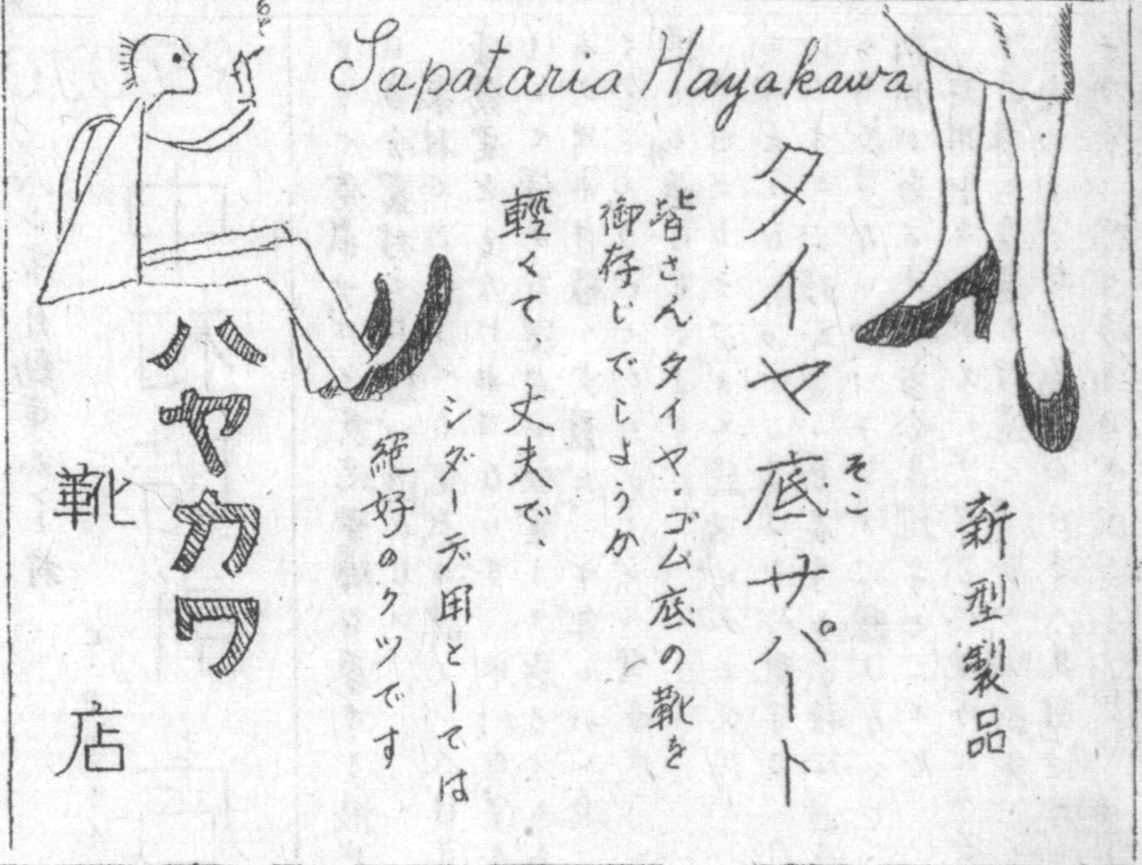 Sapataria Hayakawa
新型製品
タイヤ底サパート
そこ
皆さんタイヤ・ゴム底の靴を
御存じでしようか
軽くて、丈夫で、
シダーデ用としては
絶好のクツです
ハヤカワ
靴店